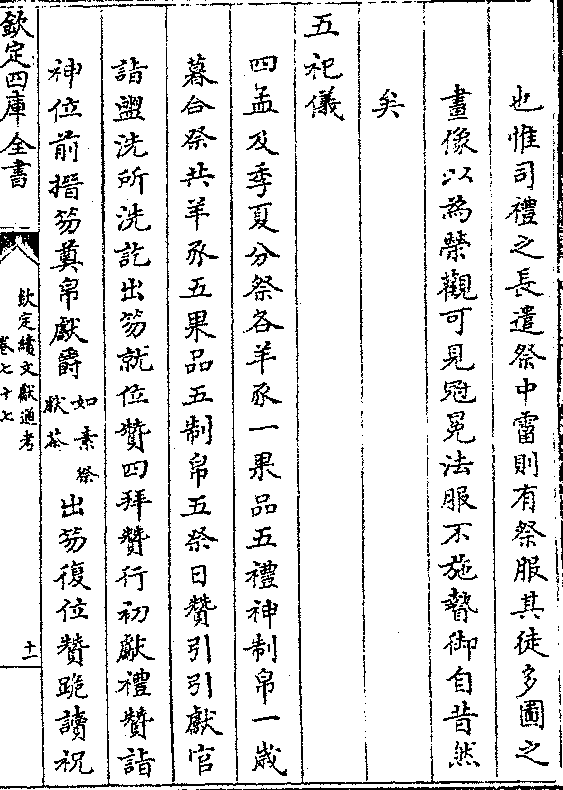 也惟司禮之長遣祭中霤則有祭服其徒多圖之
畫像以為榮觀可見冠冕法服不施䙝御自昔然
矣
五祀儀
四孟及季夏分祭各羊豕一果品五禮神制帛一歳
暮合祭共羊豕五果品五制帛五祭日贊引引獻官
詣盥洗所洗訖出笏就位贊四拜贊行初獻禮贊詣
神位前搢笏奠帛獻爵如素祭獻茶出笏復位贊跪讀祝
欽定四庫全書
欽定續文獻通考
卷七十七
十一